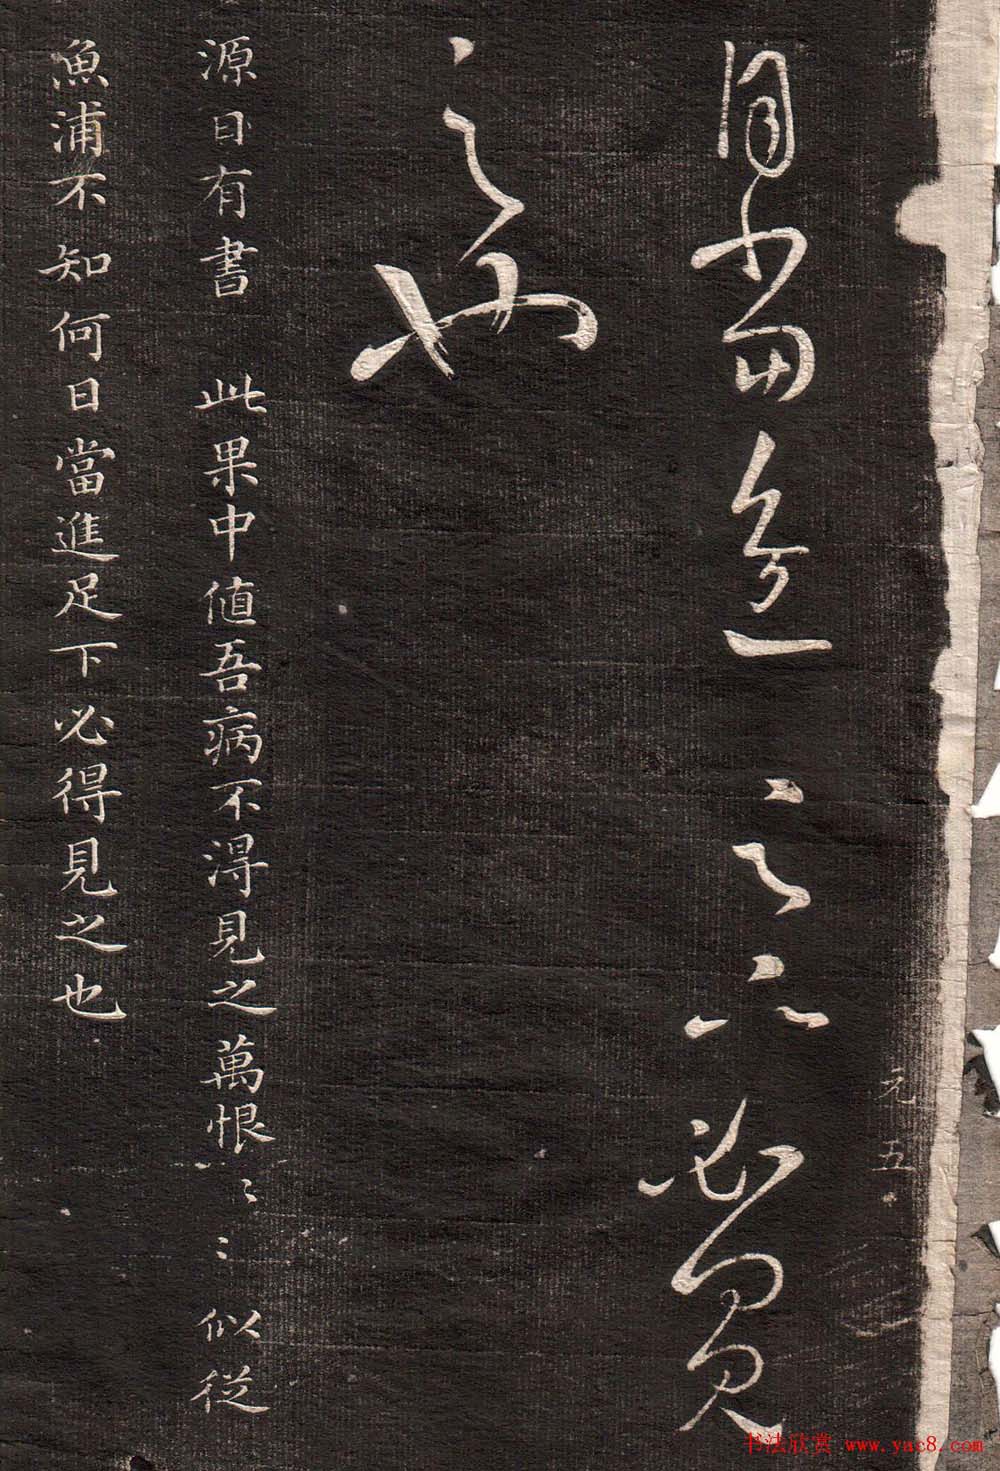 元五
日當進足下必得見
之也
源日有書 此果中値吾病不得見之萬恨〻〻似從
魚浦不知何日當進足下必得見之也
书法欣赏 www.yac8.com